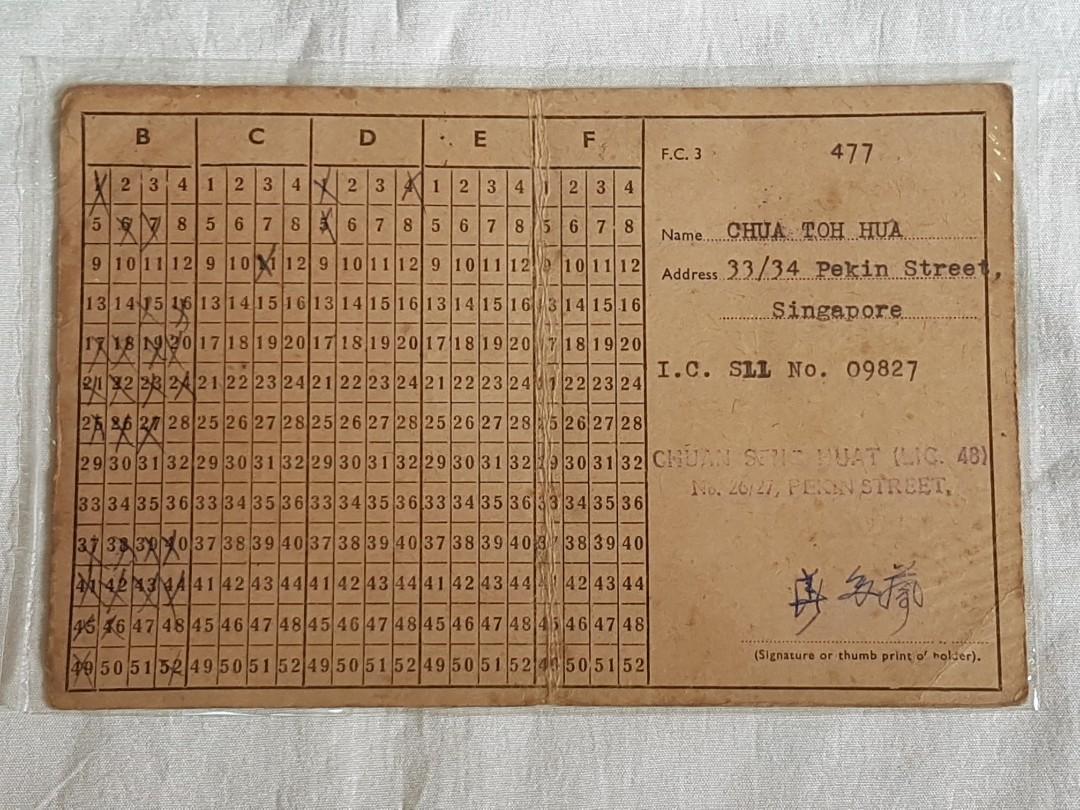 B C D E F
1 2 3 4 1 2 3 4 1 2 3 4 1 2 3 4 1 2 3 4
5 6 7 8 5 6 7 8 5 6 7 8 5 6 7 8 5 6 7 8
9 10 11 12 9 10 11 12 9 10 11 12 9 10 11 12 9 10 11 12
13 14 15 16 13 14 15 16 13 14 15 16 13 14 15 16 13 14 15 16
17 18 19 20 17 18 19 20 17 18 19 20 17 18 19 20 17 18 19 20
21 22 23 24 21 22 23 24 21 22 23 24 21 22 23 24 21 22 23 24
25 26 27 28 25 26 27 28 25 26 27 28 25 26 27 28 25 26 27 28
29 30 31 32 29 30 31 32 29 30 31 32 29 30 31 32 29 30 31 32
33 34 35 36 33 34 35 36 33 34 35 36 33 34 35 36 33 34 35 36
37 38 39 40 37 38 39 40 37 38 39 40 37 38 39 40 37 38 39 40
41 42 43 44 41 42 43 44 41 42 43 44 41 42 43 44 41 42 43 44
45 46 47 48 45 46 47 48 45 46 47 48 45 46 47 48 45 46 47 48
49 50 51 52 49 50 51 52 49 50 51 52 49 50 51 52 49 50 51 52
F.C. 3 477
Name CHUA TOH HUA
Address 33/34 Pekin Street,
Singapore
I.C. SLL No. 09827
CHUAN SENG HUAT (LIC. 48)
No. 26/27, PEKIN STREET,
(Signature or thumb print of holder).